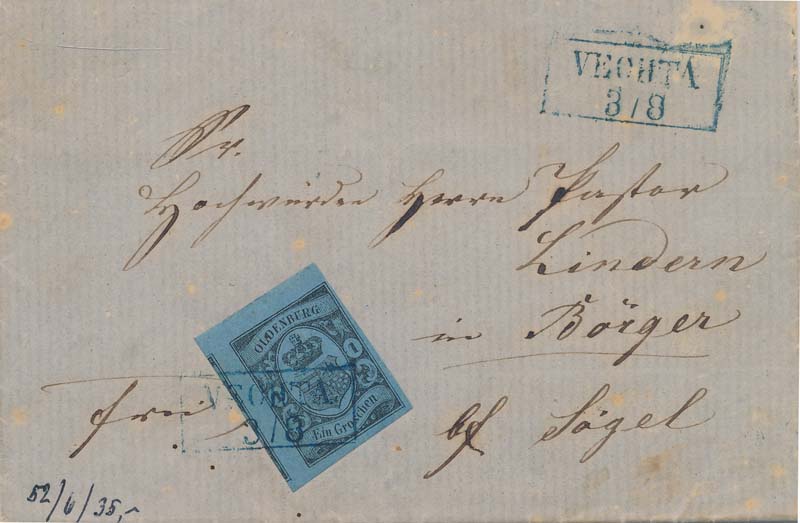 VECHTA
3/8
Sr.
Hochwürden Herrn Pastor
Lindern
in Börger
frei
bf Sögel
OLDENBURG
1
Ein Groschen
VECHTA
3/8
52/6/35,-